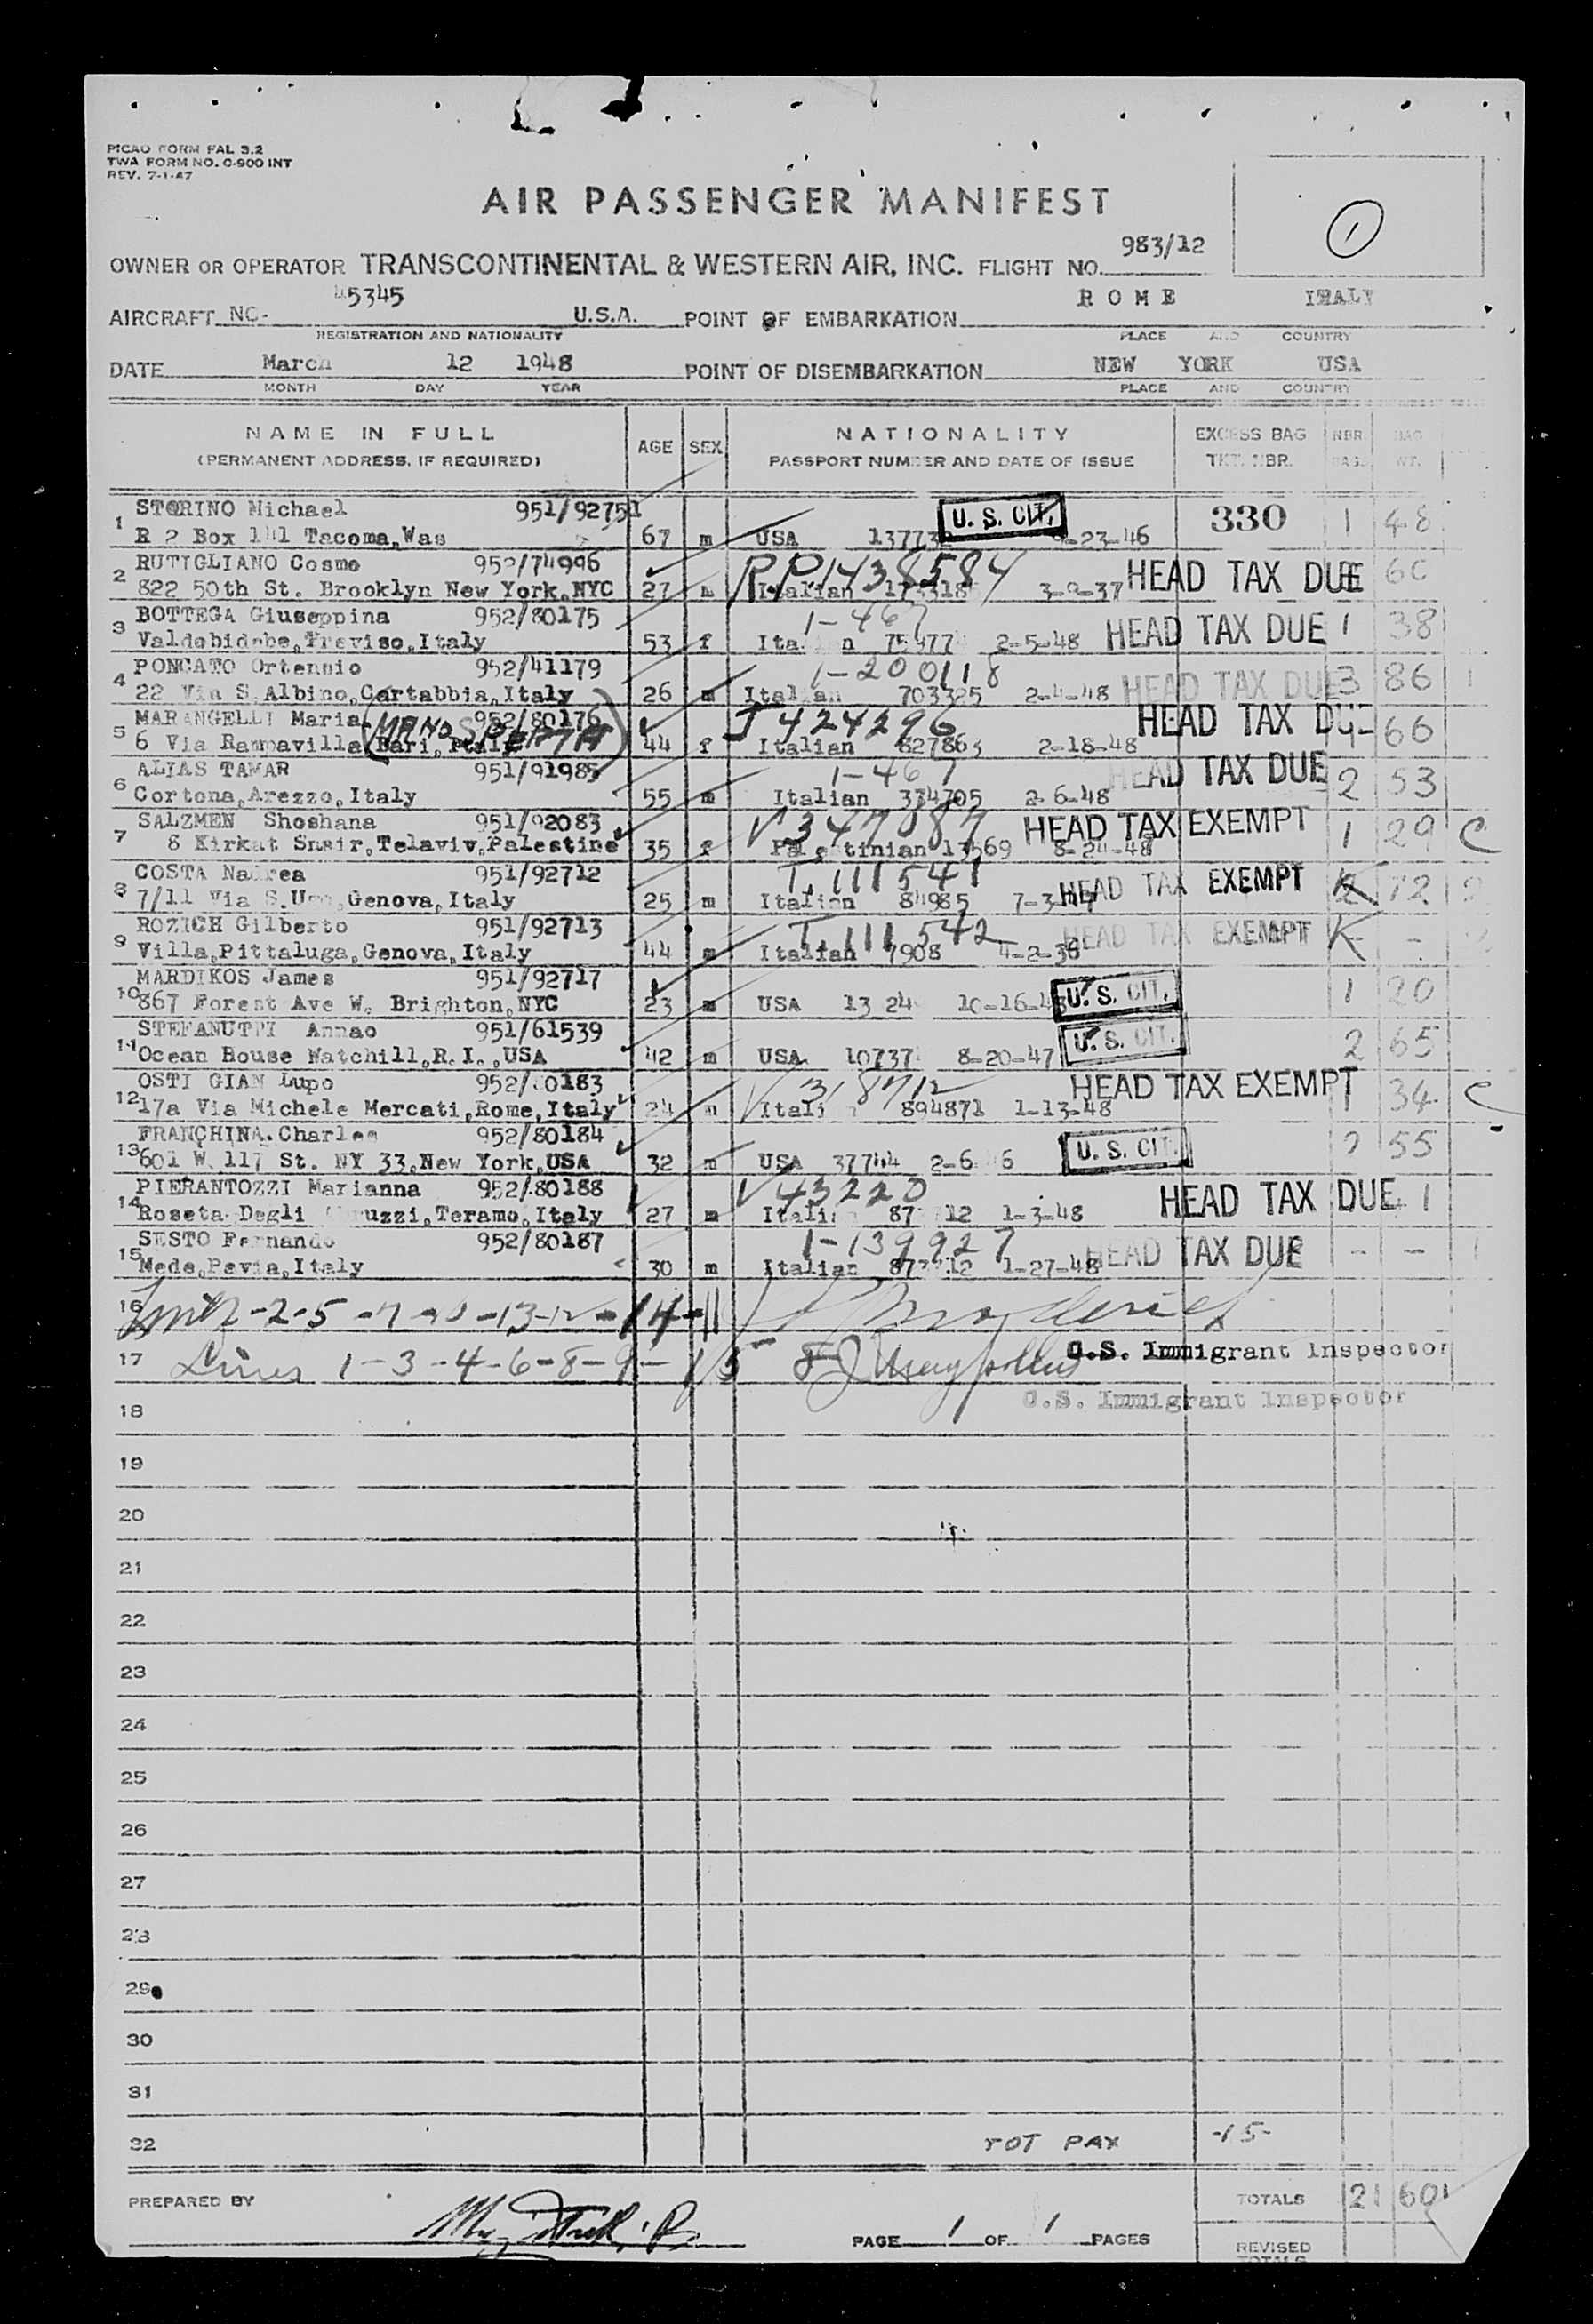 PICAO FORM FAL 3.2
TWA FORM NO. O-900 INT
REV. 7-1-47
AIR PASSENGER MANIFEST
1
OWNER OR OPERATOR TRANSCONTINENTAL & WESTERN AIR, INC. FLIGHT NO. 983/12
AIRCRAFT NC- 45345 U.S.A. POINT OF EMBARKATION ROME ITALY
REGISTRATION AND NATIONALITY PLACE AND COUNTRY
DATE March 12 1948 POINT OF DISEMBARKATION NEW YORK USA
MONTH DAY YEAR PLACE AND COUNTRY
NAME IN FULL AGE SEX NATIONALITY EXCESS BAG NBR BAG
(PERMANENT ADDRESS, IF REQUIRED) PASSPORT NUMBER AND DATE OF ISSUE TKT. NBR. BAG. WT.
STORINO Michael 951/92751 U. S. CIT. 330 1 48
1 R 2 Box 141 Tacoma,Was 67 m USA -23-46
RUTIGLIANO Cosmo 952/74996 RP1438584 HEAD TAX DUE 60
2 822 50th St. Brooklyn New York.NYC 27 m Italian 3-9-37
BOTTEGA Giuseppina 952/80175 HEAD TAX DUE 1 38
3 Valdobidebe,Treviso,Italy 53 f 2-5-48
PONCATO Ortennio 952/41179 1-200118 HEAD TAX DUE 3 86 1
4 22 Via S.Albino,Cartabbia,Italy 26 m Italian 703325 2-4-48
MARANGELLI Maria 952/80176 J424296 HEAD TAX DUE 66
5 6 Via Rampavilla Bari, Italy 44 f Italian 827863 2-18-48
ALIAS TAMAR 951/91985 HEAD TAX DUE 2 53
6 Cortona,Arezzo,Italy 55 m Italian 374705 2-6-48
SALZMEN Shoshana 951/92083 V347087 HEAD TAX EXEMPT 1 29 C
7 8 Kirkat Smeir,Telaviv,Palestine 35 f Palestinian 13569 8-24-48
COSTA Nadrea 951/92712 T.111541 HEAD TAX EXEMPT 72 2
8 7/11 Via S. Genova,Italy 25 m Italian 84985
ROZICH Gilberto 951/92713 T.111542 HEAD TAX EXEMPT K - -
9 Villa,Pittaluga,Genova,Italy 44 m Italian 7908 4-2-38
MARDIKOS James 951/92717 U. S. CIT. 1 20
10 867 Forest Ave W. Brighton,NYC 23 m USA 10-16-4
STEFANUTTI Annao 951/61539 U. S. CIT. 2 65
11 Ocean House Watchill,R.I.,USA 42 m USA 8-20-47
OSTI GIAN Lupo 952/80183 V318712 HEAD TAX EXEMPT 1 34 C
12 17a Via Michele Mercati,Rome,Italy 24 m 894871 1-13-48
FRANCHINA.Charles 952/80184 U. S. CIT. 2 55
13 601 W. 117 St. NY 33,New York,USA 32 m USA 37744 2-6
PIERANTOZZI Marianna 952/80188 V43220 HEAD TAX DUE 1
14 Roseta Degli Teramo,Italy 27 m 1-3-48
SESTO Fernando 952/80187 1-139927 HEAD TAX DUE - -
15 Mede,Pavia,Italy 30 m Italian 1-27-48
16
17 Lines 1-3-4-6-8-9-15 U.S. Immigrant Inspector
18 U.S. Immigrant Inspector
19
20
21
22
23
24
25
26
27
28
29
30
31
32 TOT PAX -15-
PREPARED BY TOTALS 21 601
PAGE 1 OF 1 PAGES
REVISED
TOTALS